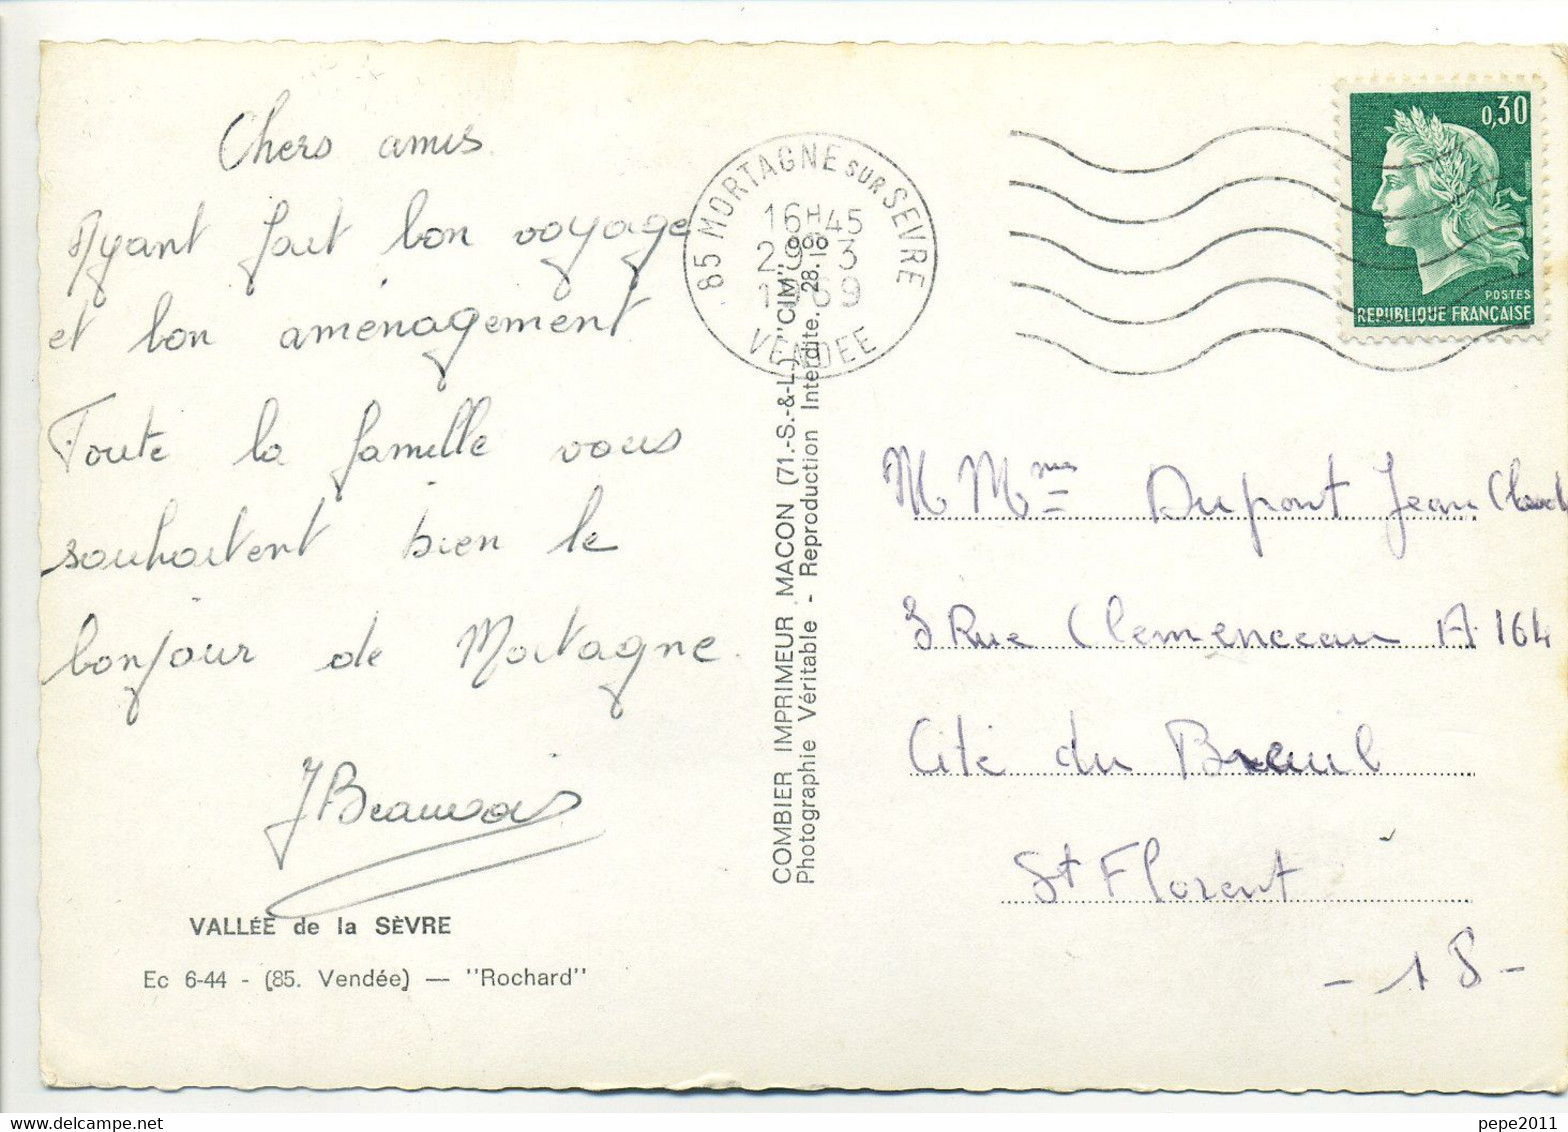 Chers amis
Ayant fait bon voyage
et bon aménagement
Toute la famille vous
souhaitent bien le
bonjour de Mortagne.
J Beauvois
VALLÉE de la SÈVRE
Ec 6-44 - (85. Vendée) — "Rochard"
COMBIER IMPRIMEUR MACON (71.-S.-&-L.) "CIM"
Photographie Véritable - Reproduction Interdite.
85 MORTAGNE SUR SEVRE
16H45
3
1969
VENDEE
0,30
POSTES
REPUBLIQUE FRANÇAISE
M Mme Dupont Jean Claud
3 Rue Clemenceau A 164
Cité du Breuil
St Florent
- 18 -
pepe2011